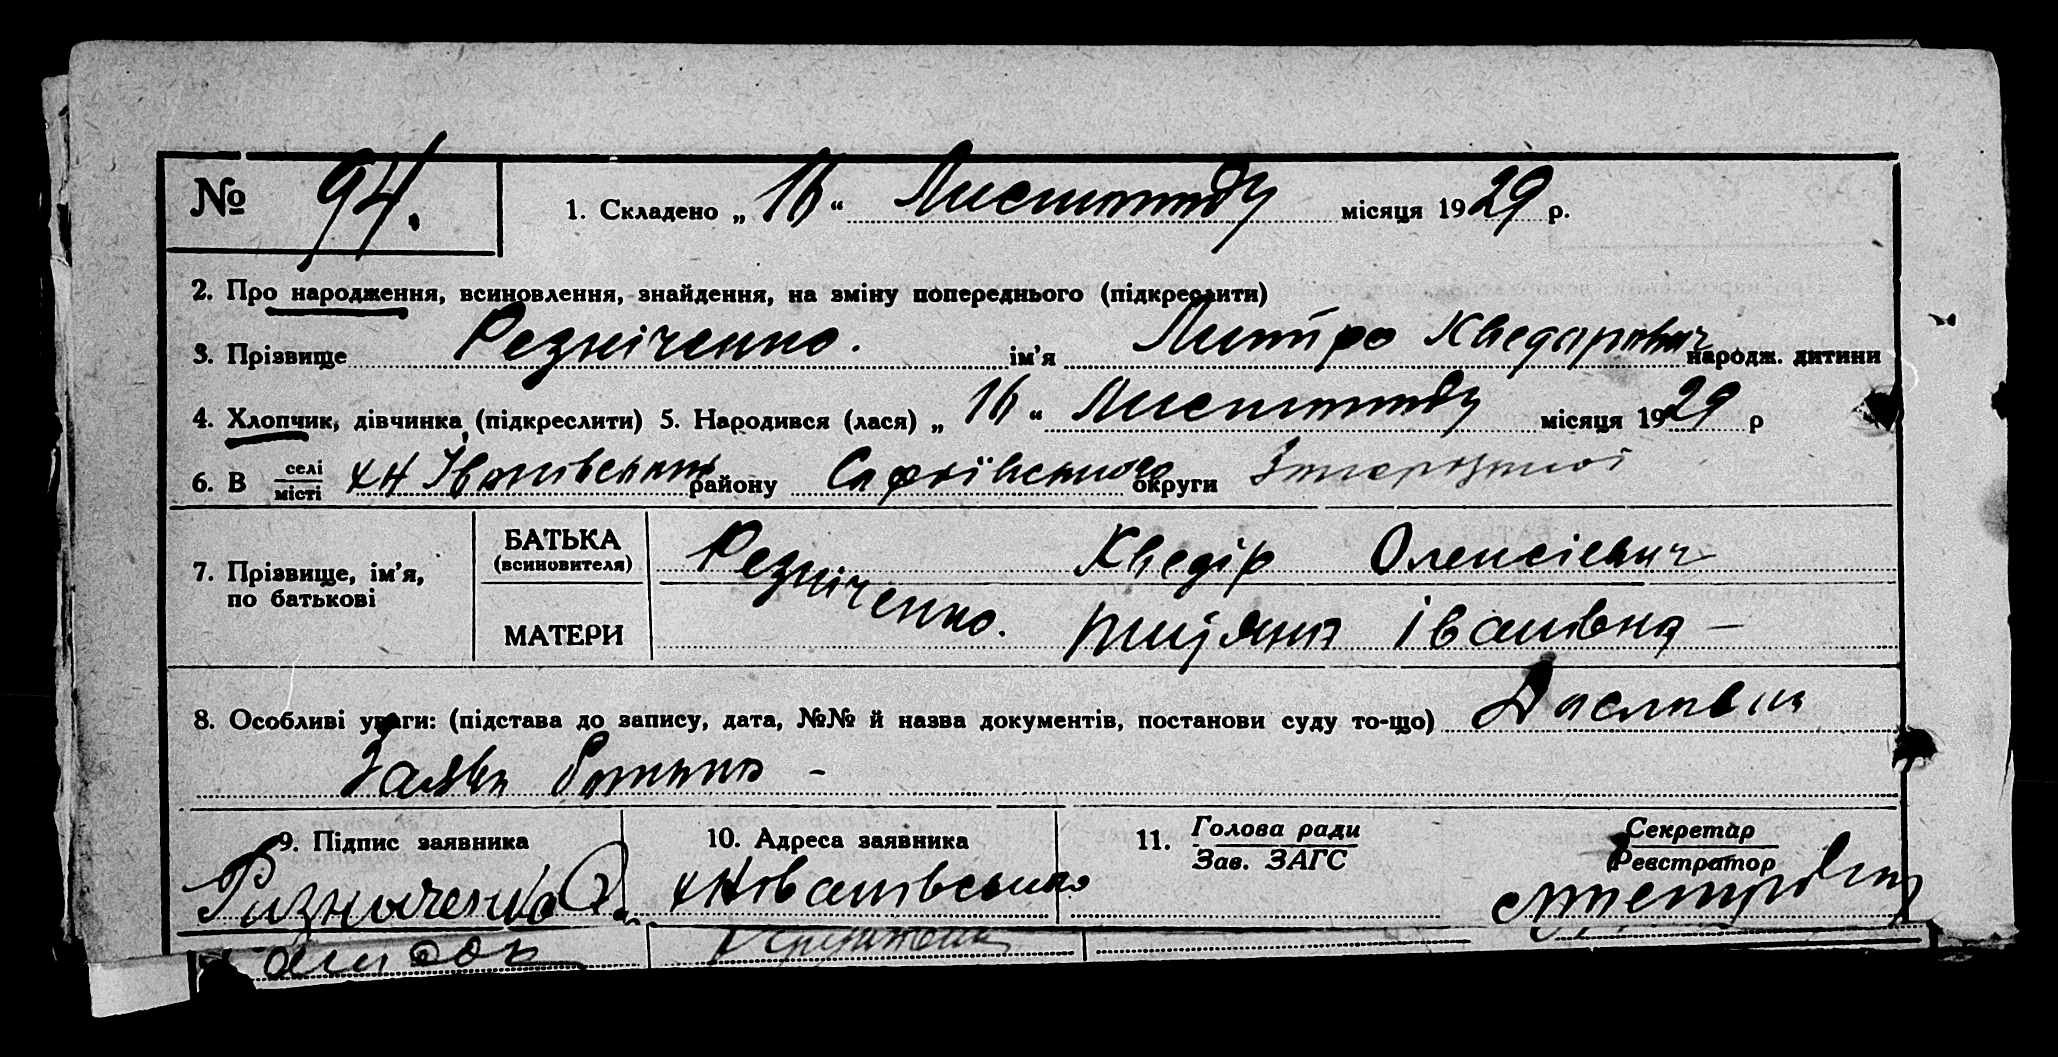 № 94.
1. Складено „ 16 “ Листопаду місяця 1929 р.
2. Про народження, всиновлення, знайдення, на зміну попереднього (підкреслити)
3. Прізвище Резніченко. ім'я Дмитро Хведорович народж. дитини
4. Хлопчик, дівчинка (підкреслити) 5. Народився (лася) „ 16 “ Листопаду місяця 1929 р
6. В селі місті хн Івановському району Софіївського округи Запорізької
7. Прізвище, ім'я, по батькові
БАТЬКА (всиновителя) Резніченко. Хведір Олексієвич
МАТЕРИ Іванівна –
8. Особливі уваги: (підстава до запису, дата, №№ й назва документів, постанови суду то-що)
Заява батька –
9. Підпис заявника 10. Адреса заявника 11. Голова ради Зав. ЗАГС Секретар Реєстратор